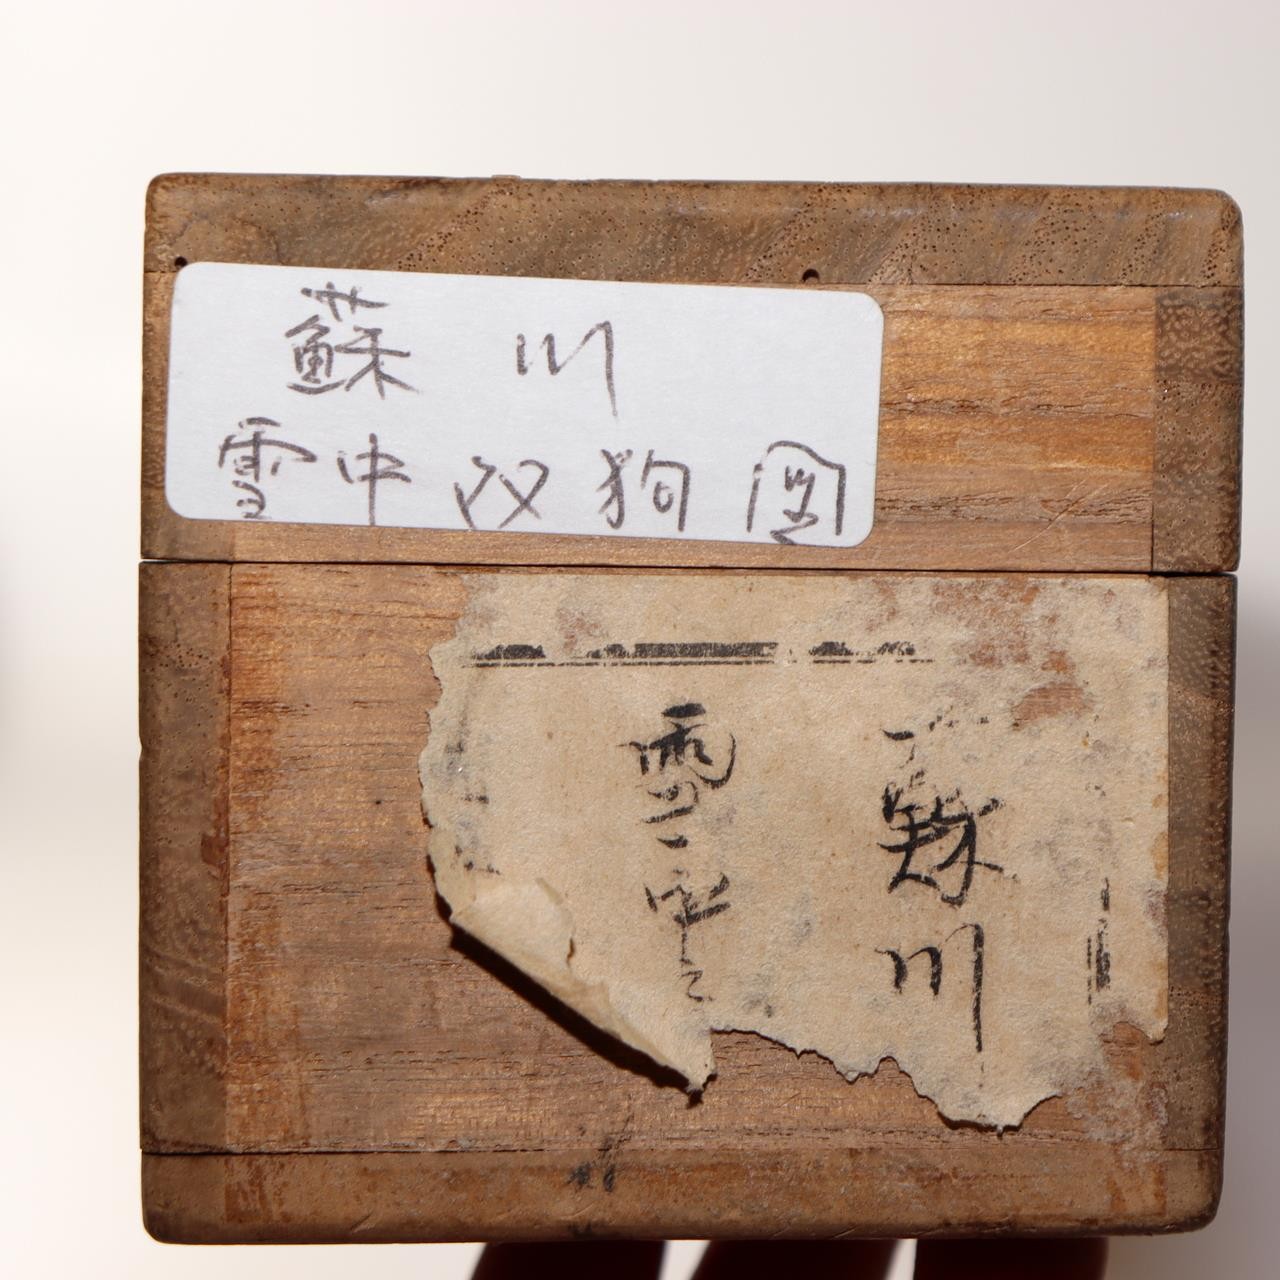 蘇川
雪中双狗図
蘇川
雪中